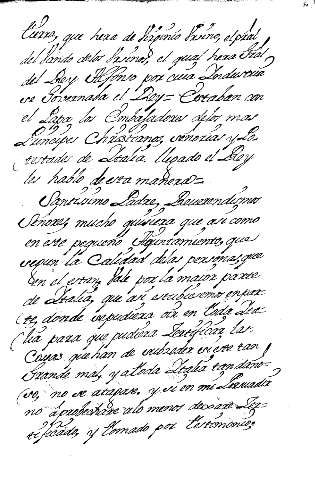 tierra, que hera de Virginio Vrsino, el qual
del vando delos Vrsinos, el qual hera Gral
del Rey Alfonso por cuia Industria
se Governaba el Rey= Estaban con
el Papa los Embaxadores delos mas
Principes Christianos, señorias y Po-
testades de Italia. llegado el Rey
les hablo de esta manera=
Santissimo Padre, Reverendissimos
Señores, mucho quisiera que asi como
en este pequeño Aiuntamiento, que
segun la Calidad delas personas, que
en el estan, Vale por la maior parte
de Italia, que asi estubiesemos en par-
te, donde se pudiera oir en toda Ita-
lia para que pudiera Testificar, las
Cosas que han de subceder si este tan
Grande mal, y a toda Italia tan daño-
so, no se atapase. y si en mi Persuadir
no aprobechare alo menos dexare Tes-
tificado, y llamado por testimonio,